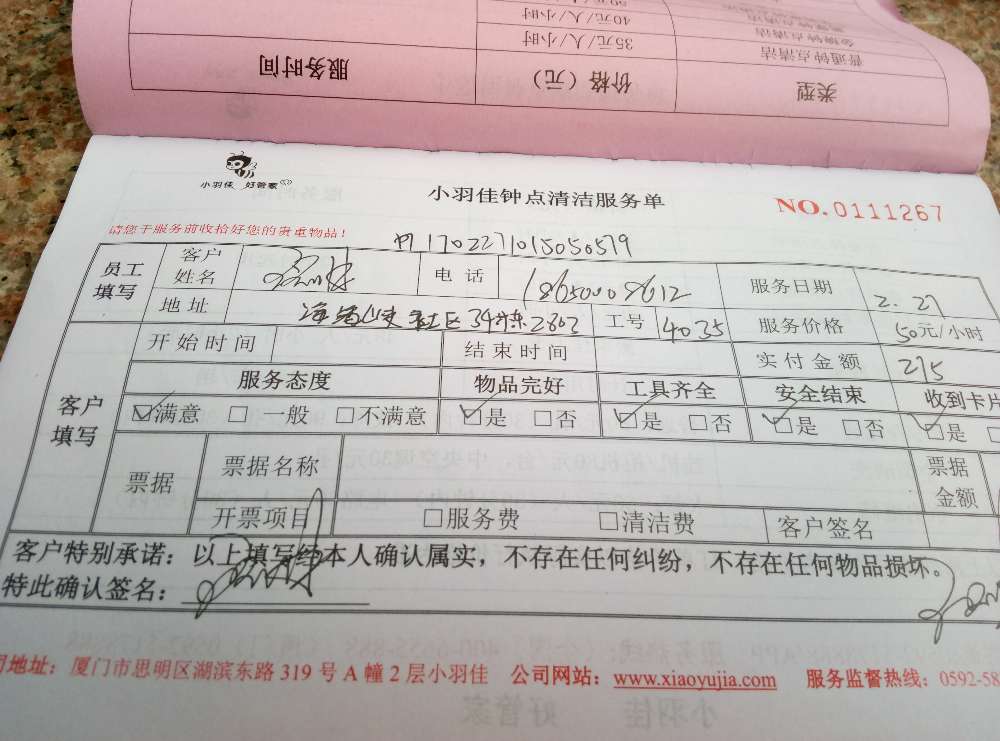 类型 价格（元） 服务时间
普通钟点清洁 35元/人/小时
金牌钟点清洁 40元/人/小时
50元/人/小时
小羽佳 好管家
小羽佳钟点清洁服务单
NO.0111267
请您于服务前收拾好您的贵重物品！
员工填写 客户姓名 电话 18650008612 服务日期 2.27
地址 社区34栋2803 工号 4035 服务价格 50元/小时
客户填写 开始时间 结束时间 实付金额 215
服务态度 物品完好 工具齐全 安全结束 收到卡片
☑满意 □一般 □不满意 ☑是 □否 ☑是 □否 ☑是 □否 ☑是
票据 票据名称 票据金额
开票项目 □服务费 □清洁费 客户签名
客户特别承诺：以上填写经本人确认属实，不存在任何纠纷，不存在任何物品损坏。
特此确认签名：
司地址：厦门市思明区湖滨东路319号A幢2层小羽佳 公司网站：www.xiaoyujia.com 服务监督热线：0592-58